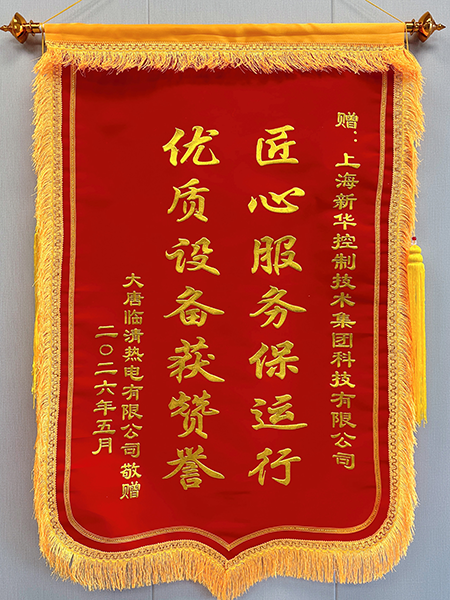 赠：上海新华控制技术集团科技有限公司
匠心服务保运行
优质设备获赞誉
大唐临清热电有限公司 敬赠
二〇二六年五月